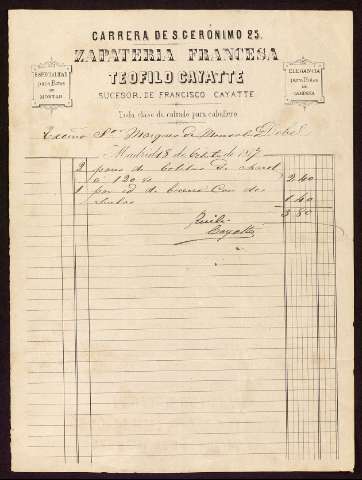 CARRERA DE S. GERÓNIMO 25.
ZAPATERIA FRANCESA
ESPECIALIDAD para Botas DE MONTAR
TEOFILO CAYATTE
ELEGANCIA para Botas DE CAMPAÑA
SUCESOR DE FRANCISCO CAYATTE
Toda clase de calzado para caballero
Excmo Sr. Marques de Debe
Madrid 8 de Octubre de 187
2 pares de botitos de charol
a 120 rs 240
1 par id de becerro Con dos
suelas 140
380
Recibi
Cayatte